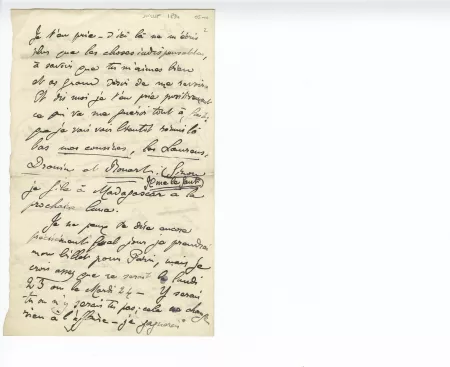 août 1891
Je t'en prie – d'ici là ne m'écris
plus que les choses indispensables,
à savoir que tu m'aimes bien
et as grand désir de me revoir.
Et dis moi je t'en prie positivement
ce qui va me guérir tout à
que je vais voir bientôt
bas mes cousines, les Laurens,
Drouin et Rouart. Sinon
je me le jure
je file à Madagascar à la
prochaine lune.
Je ne peux te dire encore
précisément quel jour je prendrai
mon billet pour Paris, mais je
crois assez que ce serait le lundi
23 ou le Mardi 24 – Y serais
tu n'y serais tu pas, cela ne change
rien à l'affaire – je